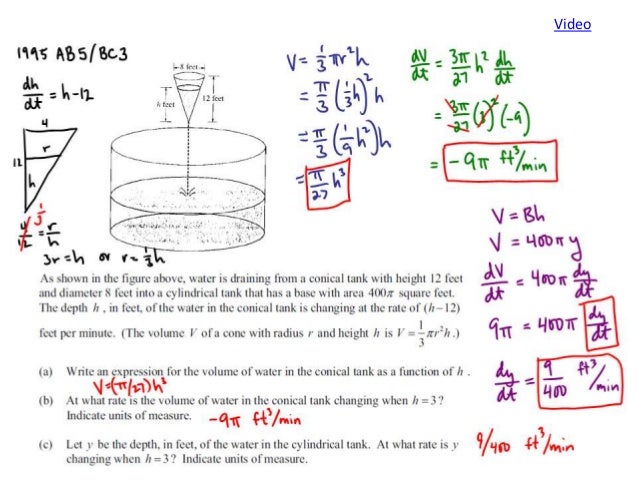 Video
1995 AB5/BC3
dh/dt = h-12
4
r
12
h
4/12 = r/h
1
3
3r=h or r=⅓h
8 feet
h feet
12 feet
V = ⅓πr²h
= π/3 (⅓h)² h
= π/3 (1/9 h²)h
= π/27 h³
dV/dt = 3π/27 h² dh/dt
= 3π/27 (3)² (-9)
= -9π ft³/min
V = Bh
V = 400πy
dV/dt = 400π dy/dt
9π = 400π dy/dt
dy/dt = 9/400 ft³/min
As shown in the figure above, water is draining from a conical tank with height 12 feet
and diameter 8 feet into a cylindrical tank that has a base with area 400π square feet.
The depth h , in feet, of the water in the conical tank is changing at the rate of (h−12)
feet per minute. (The volume V of a cone with radius r and height h is V = 1/3 πr²h.)
(a) Write an expression for the volume of water in the conical tank as a function of h .
V=(π/27)h³
(b) At what rate is the volume of water in the conical tank changing when h = 3?
Indicate units of measure. -9π ft³/min
(c) Let y be the depth, in feet, of the water in the cylindrical tank. At what rate is y
changing when h = 3? Indicate units of measure.
9/400 ft³/min